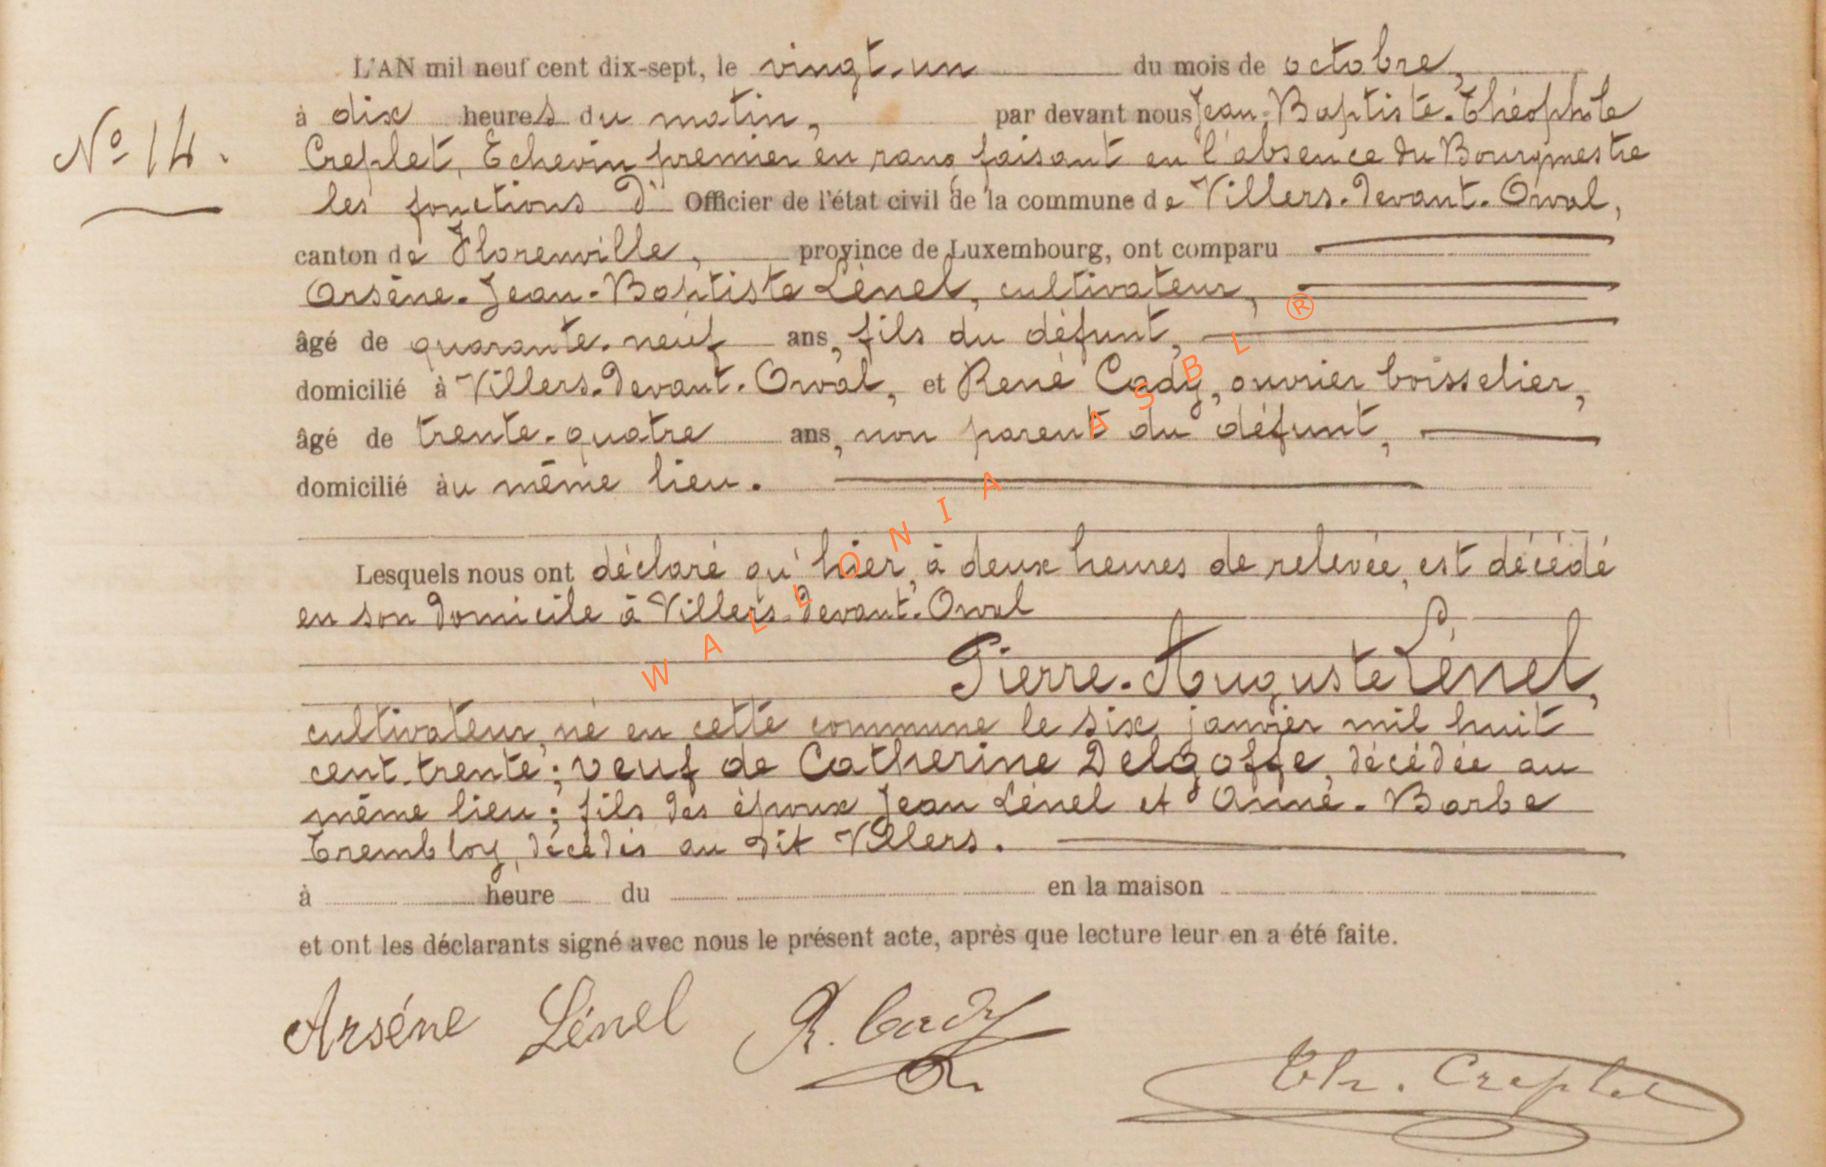 L'AN mil neuf cent dix-sept, le vingt-un du mois de octobre,
à dix heures du matin, par devant nous Jean-Baptiste-Théophile
N° 14. Creplet, Echevin premier en rang faisant en l'absence du Bourgmestre
les fonctions d' Officier de l'état civil de la commune de Villers-devant-Orval,
canton de Florenville, province de Luxembourg, ont comparu
Arsène-Jean-Baptiste Lénel, cultivateur,
âgé de quarante-neuf ans, fils du défunt,
domicilié à Villers-devant-Orval, et René Cady, ouvrier boisselier,
âgé de trente-quatre ans, non parent du défunt,
domicilié au même lieu.
Lesquels nous ont déclaré qu'hier, à deux heures de relevée, est décédé
en son domicile à Villers-devant-Orval
Pierre-Auguste Lénel,
cultivateur, né en cette commune le six janvier mil huit
cent trente; veuf de Catherine Delgoffe, décédée au
même lieu; fils des époux Jean Lénel et Anne-Barbe
Trembloy, décédés au dit Villers.
à heure du en la maison
et ont les déclarants signé avec nous le présent acte, après que lecture leur en a été faite.
Arséne Lénel R. Cady
Th. Creplet
WALLONIA ASBL ®